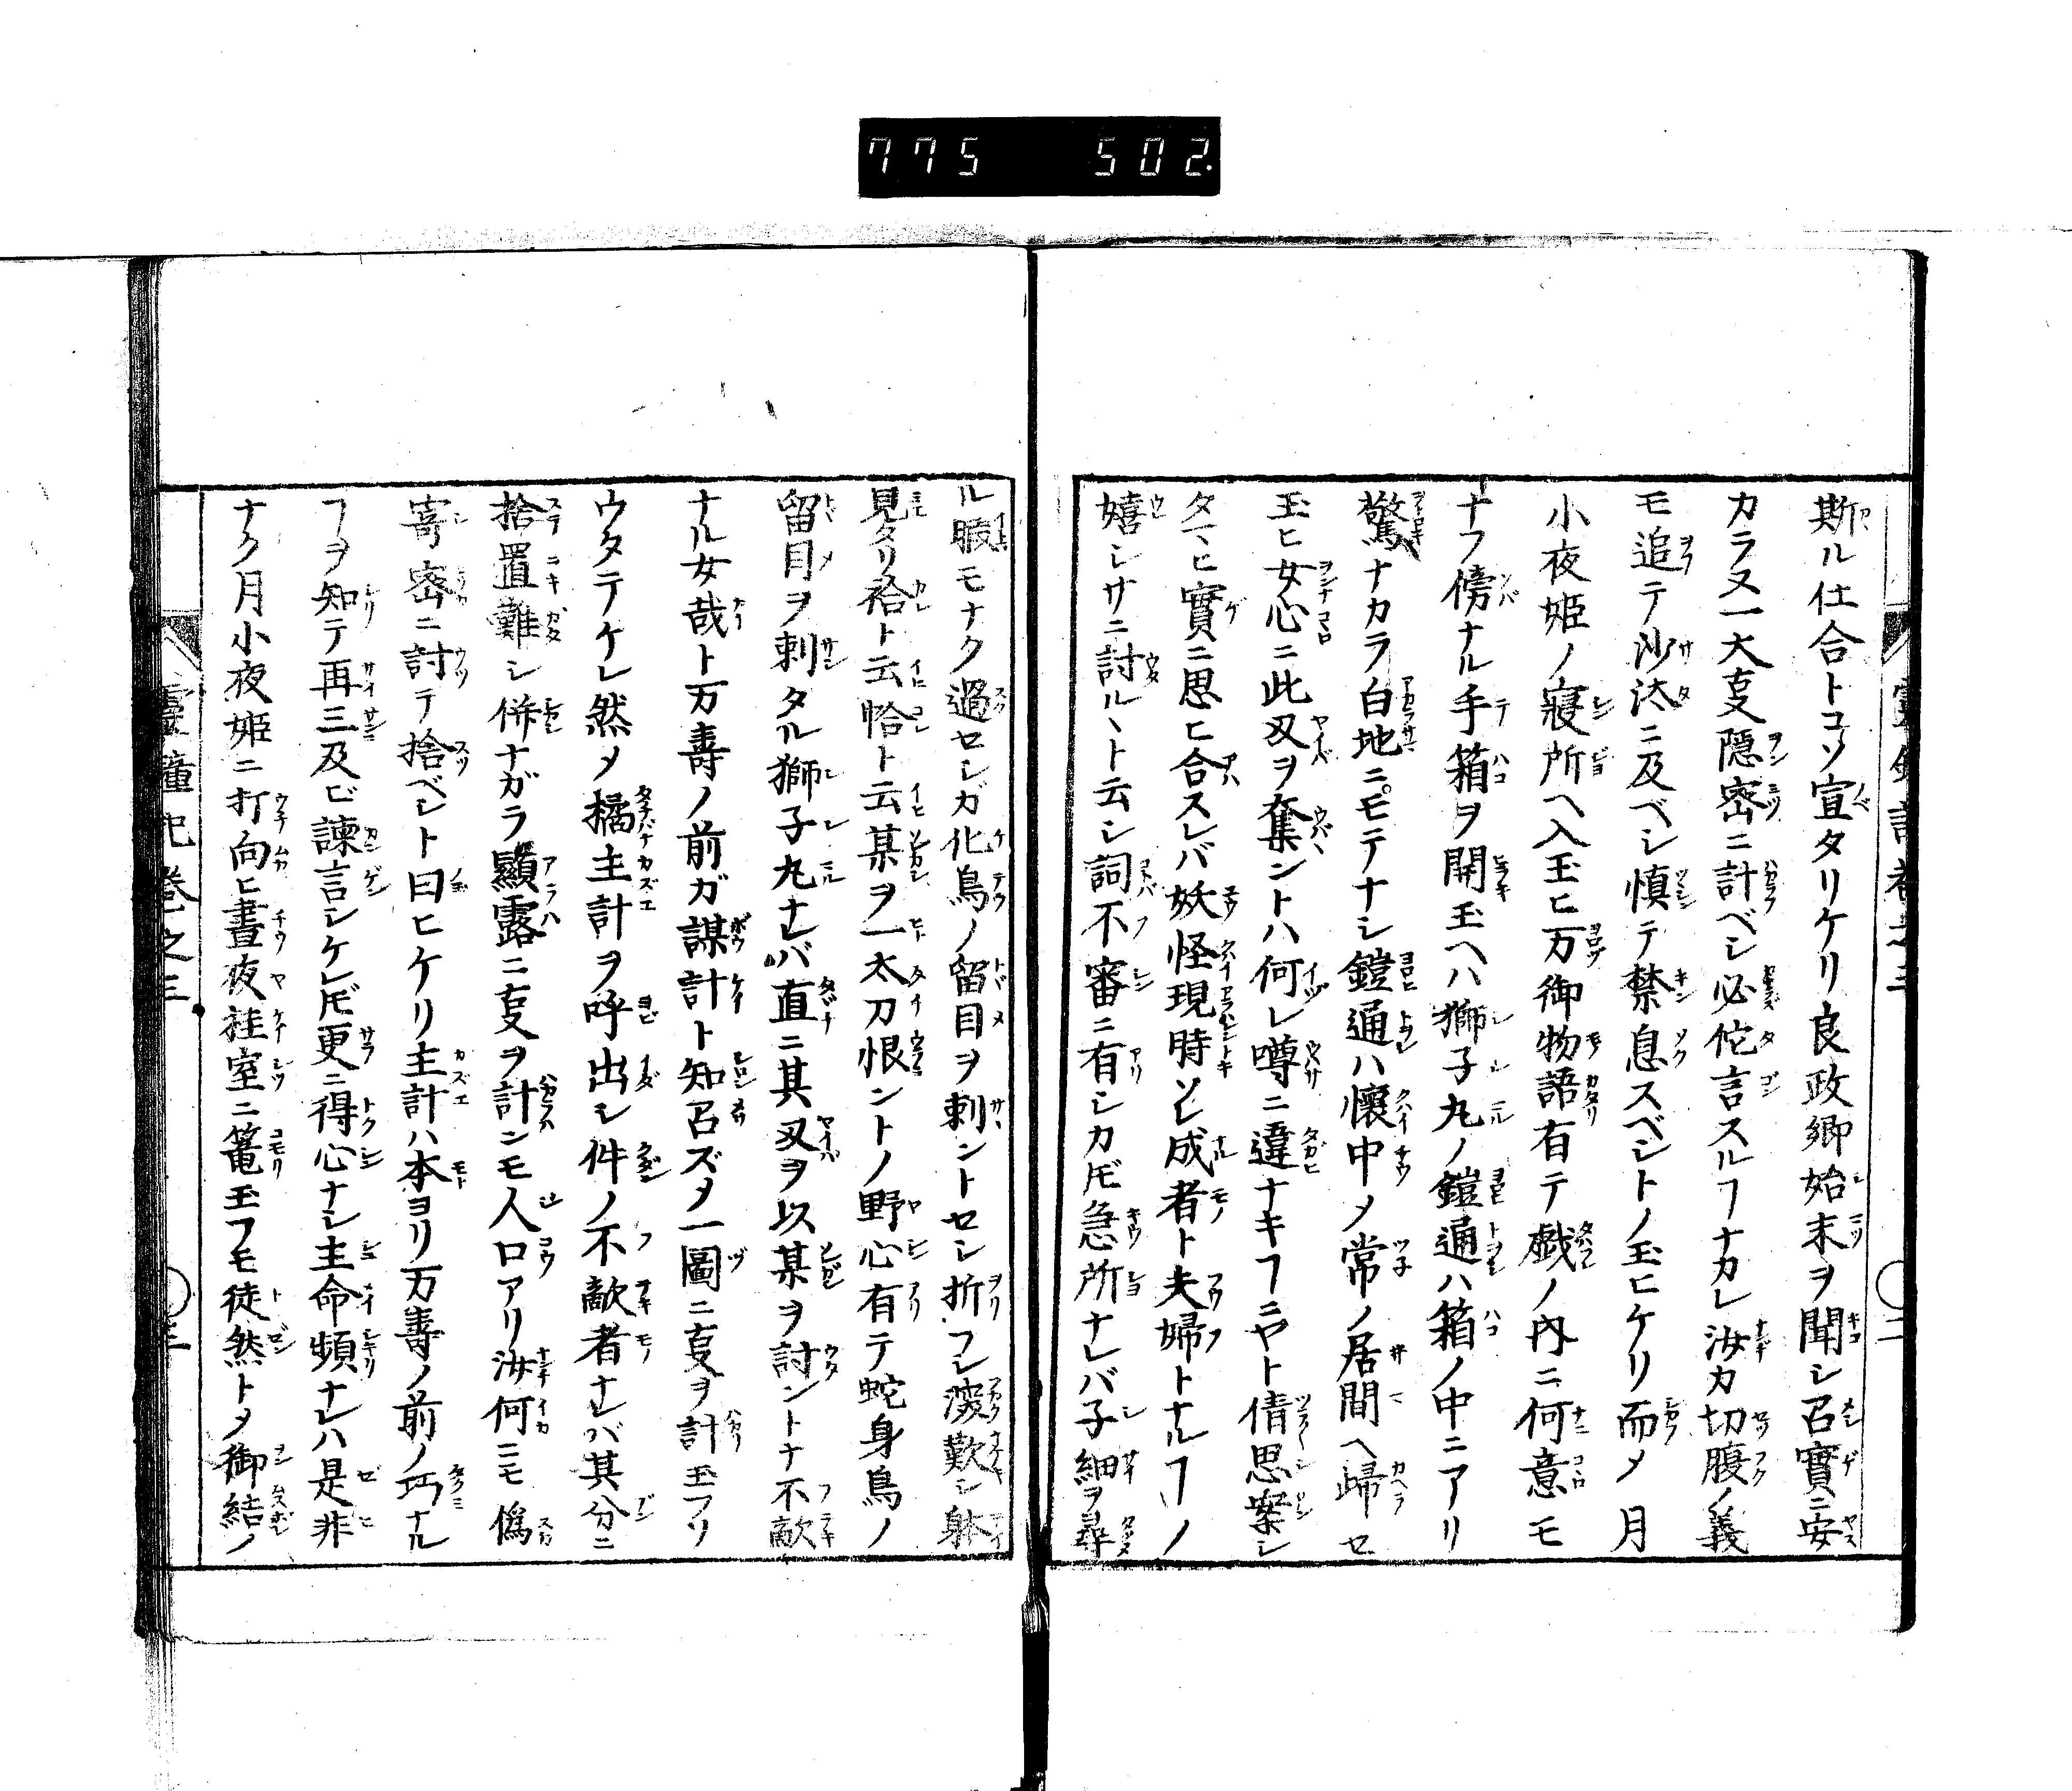 775 502.
斯ル仕合トコソ宣タリケリ良政卿始末ヲ聞シ召實ニ安
カラヌ一大㕝隠密ニ計ベシ必佗言スルヿナカレ汝カ切腹ノ義
モ追テ沙汰ニ及ベシ慎テ禁息スベシトノ玉ヒケリ而メ月
小夜姫ノ寢所ヘ入玉ヒ万御物語有テ戯ノ内ニ何意モ
ナフ傍ナル手箱ヲ開玉ヘハ獅子丸ノ鎧通ハ箱ノ中ニアリ
驚ナカラ白地ニモテナシ鎧通ハ懷中メ常ノ居間ヘ歸セ
玉ヒ女心ニ此刄ヲ奪ントハ何レ噂ニ違ナキヿニヤト倩思案シ
タマヒ實ニ思ヒ合スレバ妖怪現時ソレ成者ト夫婦トナルヿノ
嬉シサニ討ルヽト云シ詞不審ニ有シカ𪜈急所ナレバ子細ヲ尋
ル暇モナク過セシガ化鳥ノ留目ヲ刺ントセシ折フレ涙歎シ躰
見タリ袷ト云恰ト云某ヲ一太刀恨ントノ野心有テ蛇身鳥ノ
留目ヲ刺タル獅子丸ナレバ直ニ其刄ヲ以某ヲ討ントナ不敵
ナル女哉ト万壽ノ前ガ謀計ト知召ズメ一圖ニ㕝ヲ計玉フソ
ウタテケレ然メ橘主計ヲ呼出シ件ノ不敵者ナレバ其分ニ
捨置難シ併ナガラ顯露ニ㕝ヲ計ンモ人口アリ汝何ニモ偽
寄密ニ討テ捨ベシト曰ヒケリ主計ハ本ヨリ万壽ノ前ノ巧ナル
ヿヲ知テ再三及ビ諫言シケレ𪜈更ニ得心ナシ主命頻ナレハ是非
ナク月小夜姫ニ打向ヒ晝夜袿室ニ篭玉フモ徒然トメ御結ノ
靈鐘記巻之三